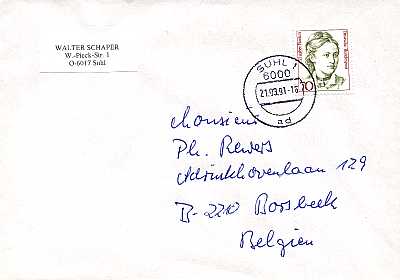 WALTER SCHAPER
W.-Pieck-Str. 1
O-6017 Suhl
SUHL 1
6000
21.03.91-18
ad
70
Monsieur
Ph. Rewers
Adrinkhovenlaan 129
B-2210 Borsbeek
Belgien